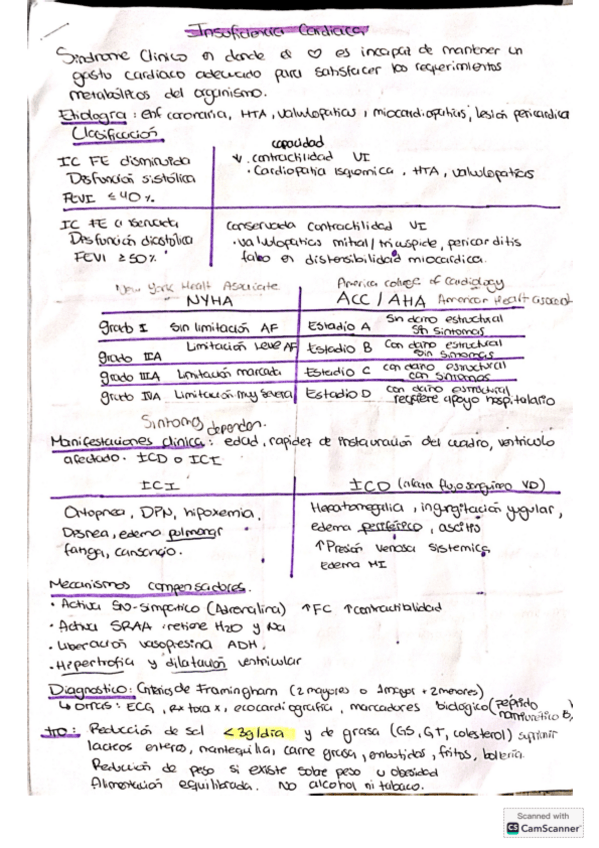 Insuficiencia Cardiaca
Sindrome Clinico en donde el ♡ es incapaz de mantener un
gasto cardiaco adecuado para satisfacer los requerimientos
metabolicos del organismo.
Etiologia: enf coronaria, HTA, valvulopatias, miocardiopatias, lesión pericardica
Clasificación
capacidad
IC FE disminuida
Disfunción sistólica
FEVI ≤ 40%
↓ contractilidad VI
· Cardiopatia Isquemica, HTA, valvulopatias
IC FE conservada
Disfunción diastólica
FEVI ≥ 50%
conservada contractilidad VI
· valvulopatias mitral/tricuspide, pericarditis
falla en distensibilidad miocardica.
New York Healt Asociate
NYHA
America college of Cardiology
ACC / AHA American Healt asociat
grado I Sin limitación AF
Estadio A Sin daño estructural
Sin sintomas
grado IIA Limitación Leve AF
Estadio B Con daño estructural
Sin sintomas
grado IIIA Limitación marcada
Estadio C con daño estructural
con sintomas
grado IVA Limitación muy severa
Estadio D con daño estructural
requiere apoyo hospitalario
Sintomas dependen.
Manifestaciones clinica: edad, rapidez de instauración del cuadro, ventriculo
afectado. ICD o ICI
ICI
Ortopnea, DPN, hipoxemia,
Disnea, edema pulmonar
fatiga, cansancio.
ICD (flujo sanguineo VD)
Hepatomegalia, ingurgitación yugular,
edema periférico, ascitis
↑ Presión venosa sistemica
Edema MI
Mecanismos compensadores.
· Activa SN-simpatico (Adrenalina) ↑FC ↑contractibilidad
· Activa SRAA retiene H2O y Na
· Liberación vasopresina ADH.
· Hipertrofia y dilatación ventricular
Diagnostico: Criterios de Framingham (2 mayores o 1 mayor + 2 menores)
↳ otras: ECG, Rx torax, ecocardiografia, marcadores biologico (péptido
natriuretico B)
tto: Reducción de sal <3g/dia y de grasa (GS, GT, colesterol) suprimir
lacteos enteros, mantequilla, carne grasa, embutidos, fritos, bolleria.
Reducción de peso si existe sobre peso u obesidad
Alimentación equilibrada. No alcohol ni tabaco.
Scanned with
CS CamScanner